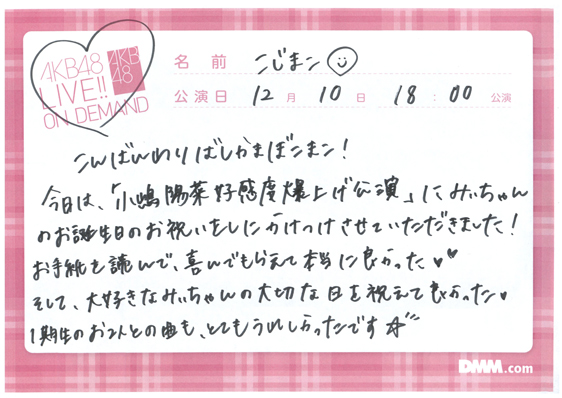 AKB48
LIVE!!
ON DEMAND
AKB
48
名前 こじまこ
公演日 12月10日 18:00公演
こんばんわりばしかまぼこまこ!
今日は、「小嶋陽菜好感度爆上げ公演」にみぃちゃん
のお誕生日のお祝いをしにかけつけさせていただきました!
お手紙を読んで、喜んでもらえて本当に良かった♥♥
そして、大好きなみぃちゃんの大切な日を祝えて良かった♥
1期生のお2人との曲も、とてもうれしかったです☆
DMM.com